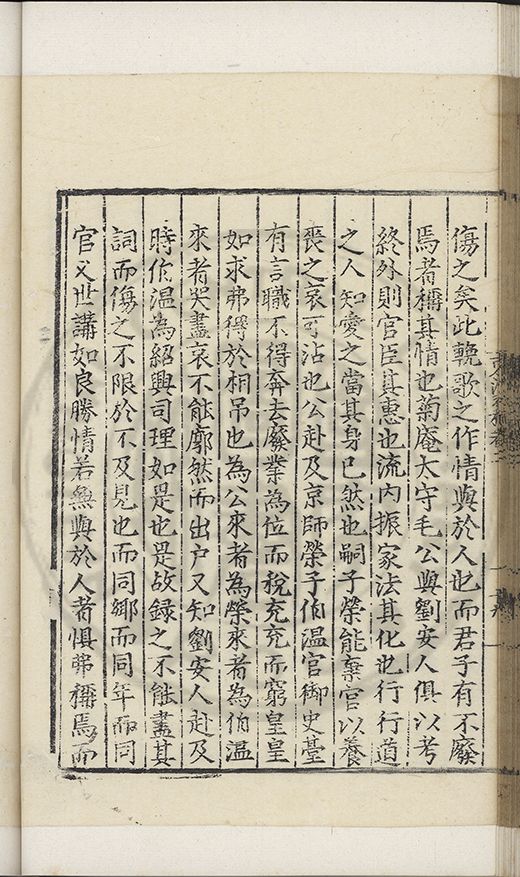 傷之矣此輓歌之作情與於人也而君子有不廢
焉者稱其情也菊庵大守毛公與劉安人俱以考
終外則官臣其惠也流內振家法其化也行行道
之人知愛之當其身已然也嗣子榮能棄官以養
喪之哀可沾也公赴及京師榮子伯溫官御史臺
有言職不得奔去廢業為位而稅充充而窮皇皇
如求弗得於相吊也為公來者為榮來者為伯溫
來者哭盡哀不能廓然而出户又知劉安人赴及
時伯溫為紹興司理如是也是故録之不能盡其
詞而傷之不限於不及見也而同鄉而同年而同
官父世講如良勝情若無與於人者懼弗稱焉而